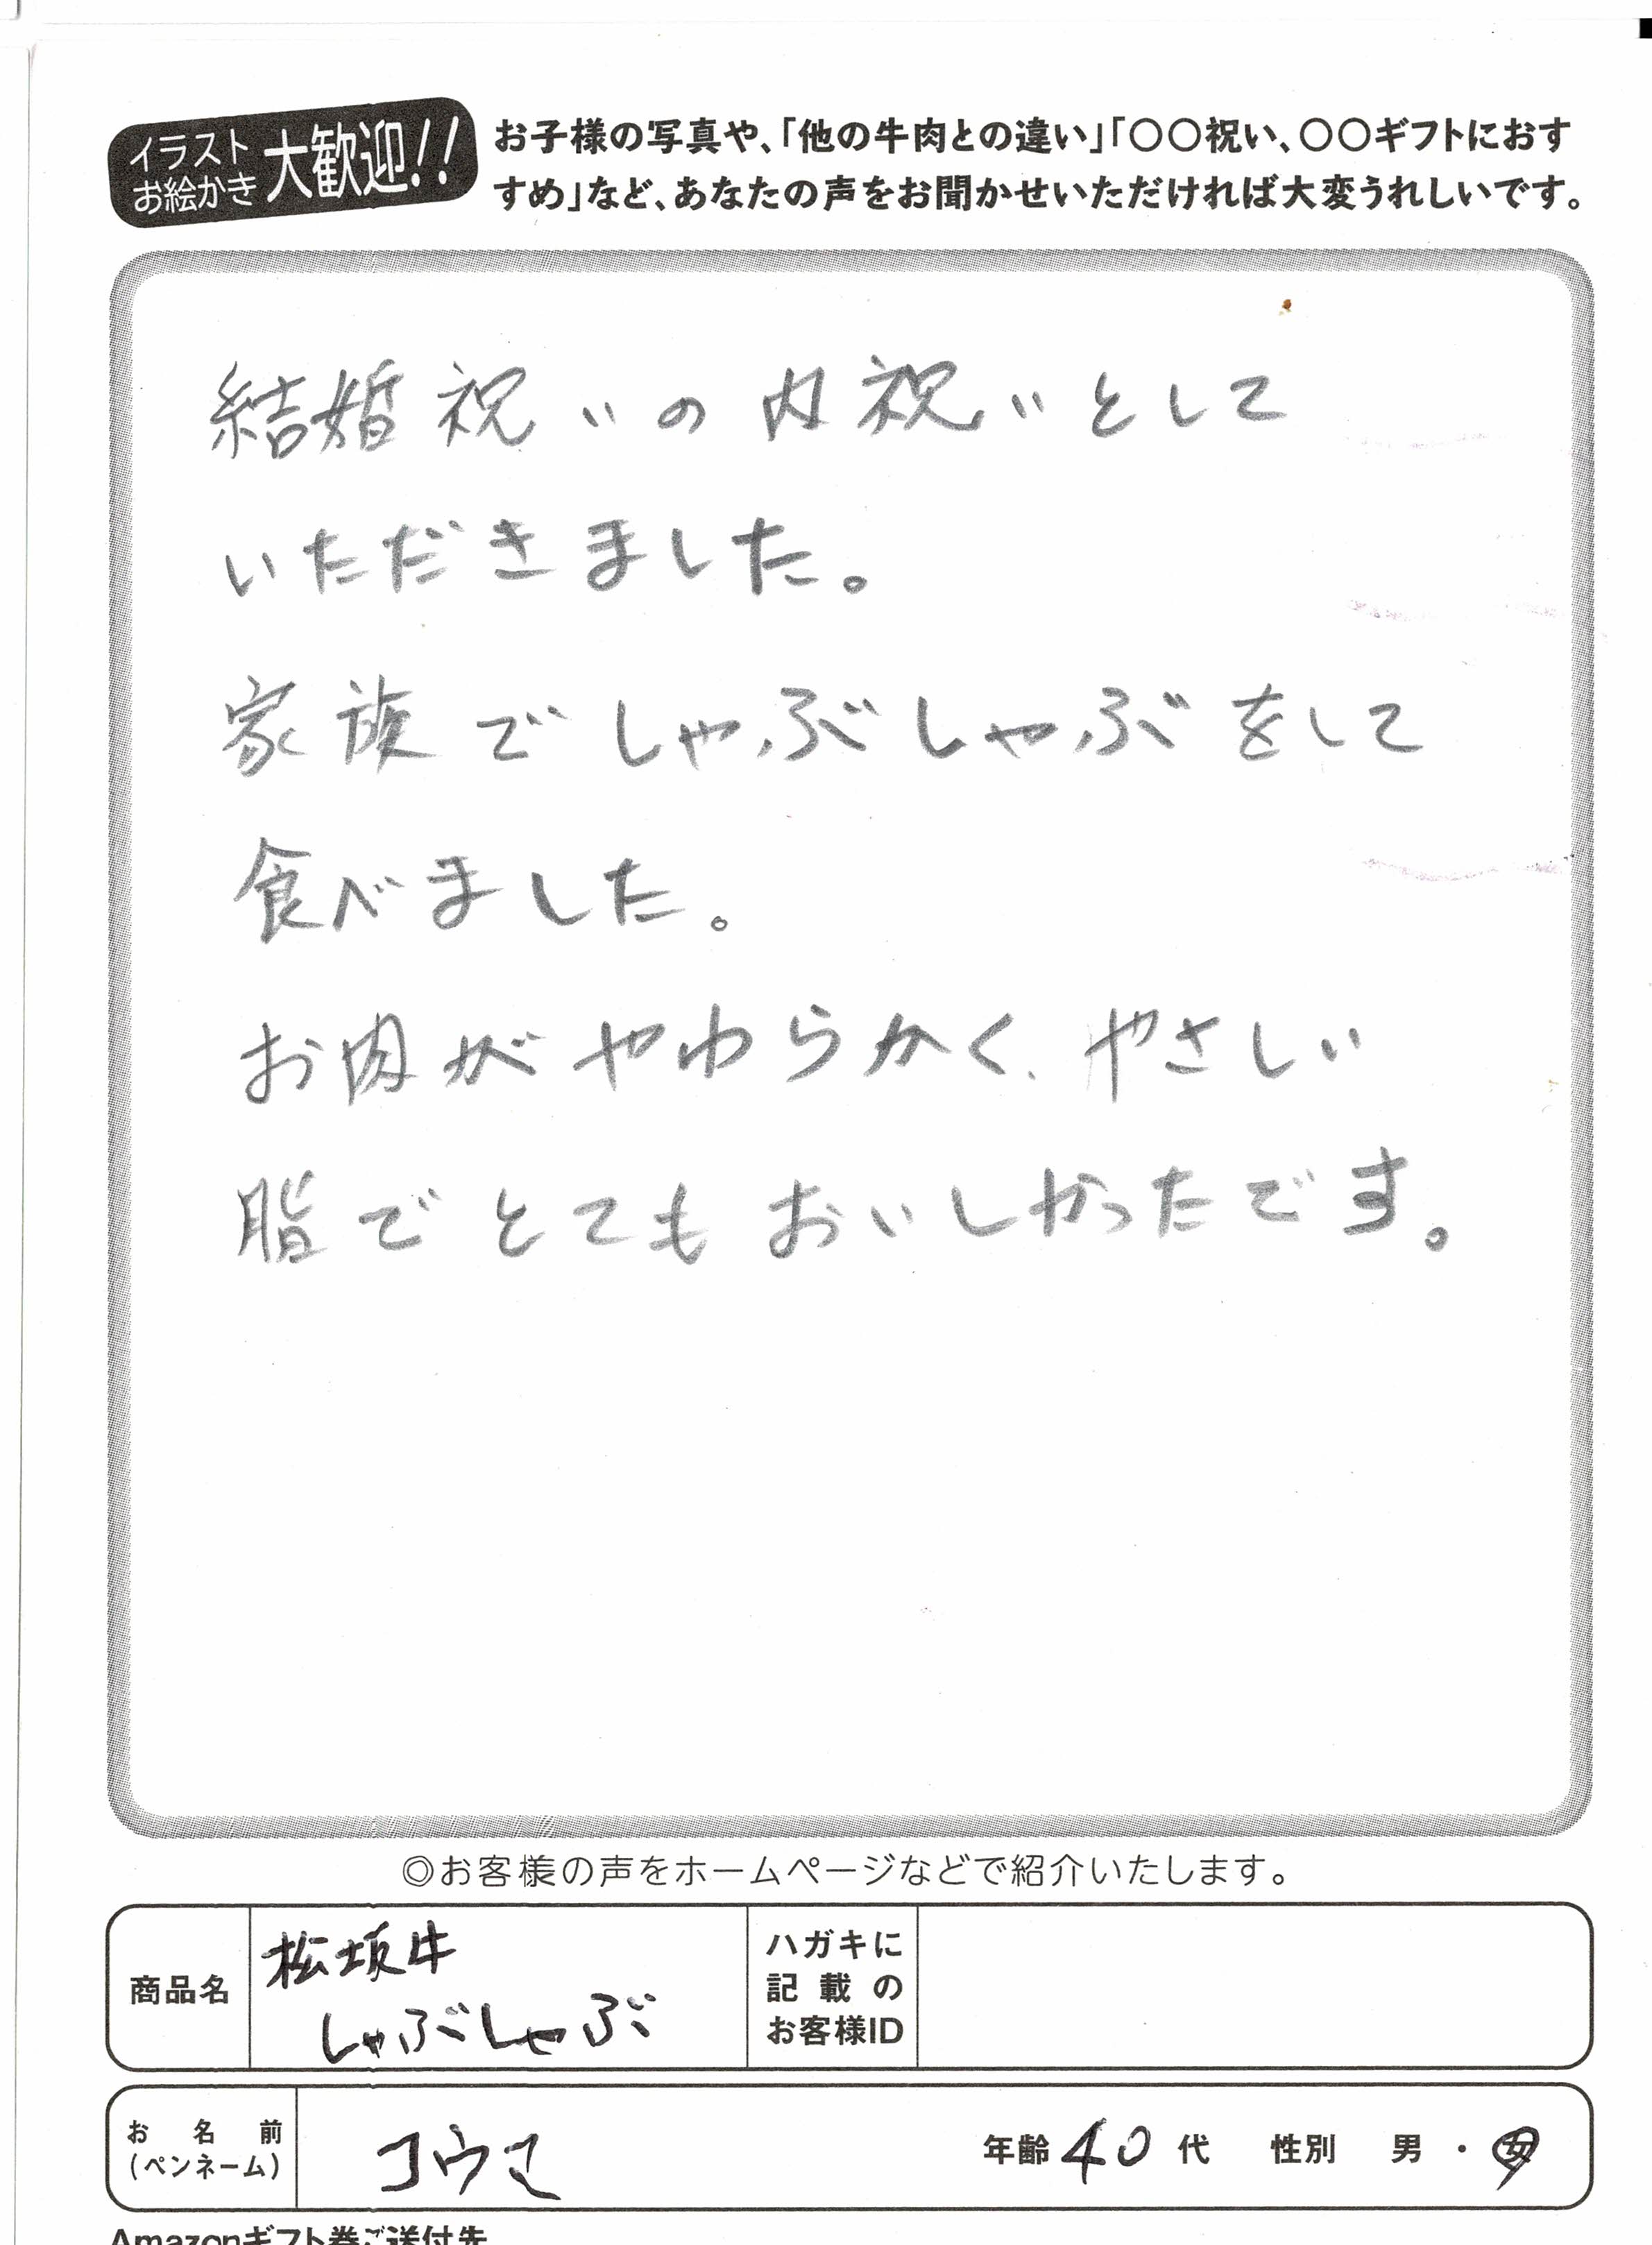 イラスト
お絵かき
大歓迎!!
お子様の写真や、「他の牛肉との違い」「〇〇祝い、〇〇ギフトにおす
すめ」など、あなたの声をお聞かせいただければ大変うれしいです。
結婚祝いの内祝いとして
いただきました。
家族でしゃぶしゃぶをして
食べました。
お肉がやわらかく、やさしい
脂でとてもおいしかったです。
◎お客様の声をホームページなどで紹介いたします。
商品名
松坂牛
しゃぶしゃぶ
ハガキに
記載の
お客様ID
お名前
(ペンネーム)
コウマ
年齢 40 代 性別 男・女
Amazonギフト券ご送付先